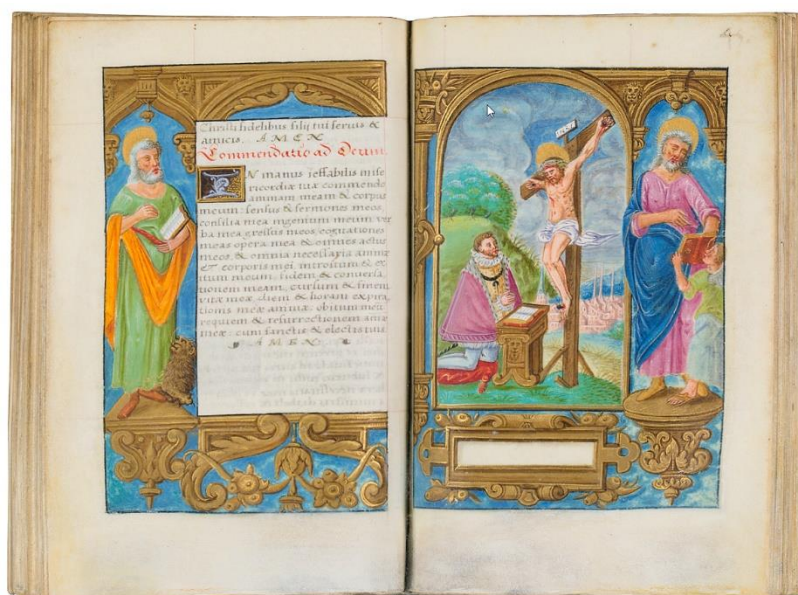 Christi fidelibus filij tui servis &
amicis. AMEN
Commendatio ad Deum.
IN manus ineffabilis mise
ricordiæ tuæ commendo
animam meam & corpus
meum: sensus & sermones meos,
consilia mea ingenium meum ver
ba mea, gressus meos, cogitationes
meas opera mea & omnes actus
meos, & omnia necessaria animæ
ET corporis mei introitum & ex
itum meum, fidem & conversa
tionem meam, cursum & finem
vitæ meæ, diem & horam expira
tionis meæ
requiem & resurrectionem animæ
meæ: cum sanctis & electis tuis
AMEN
INRI